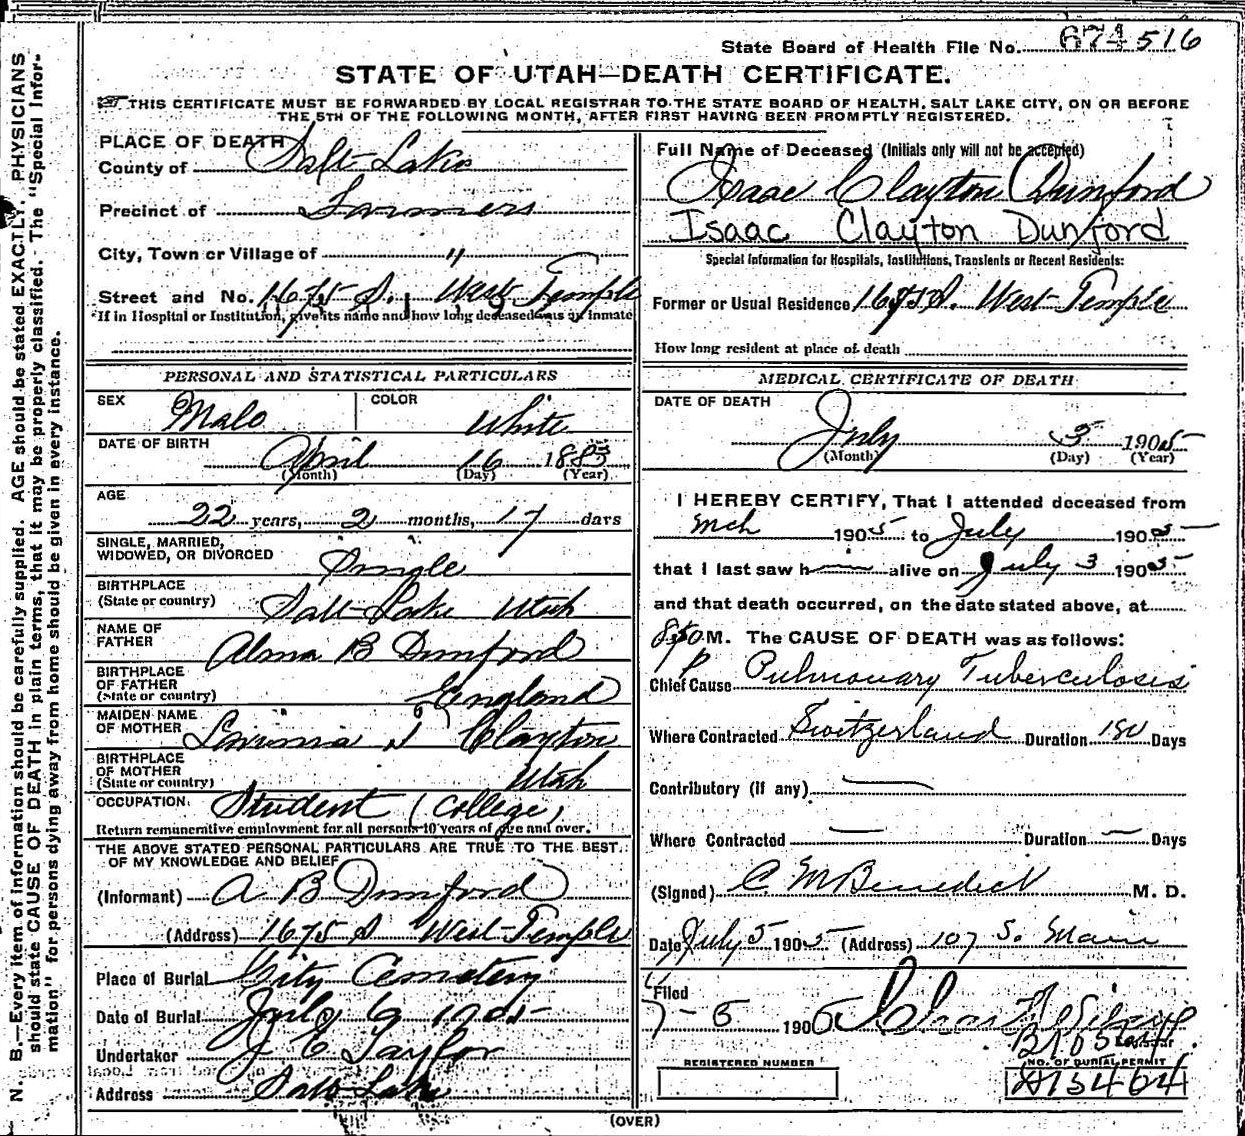 State Board of Health File No. 674 516
STATE OF UTAH—DEATH CERTIFICATE.
THIS CERTIFICATE MUST BE FORWARDED BY LOCAL REGISTRAR TO THE STATE BOARD OF HEALTH, SALT LAKE CITY, ON OR BEFORE
THE 5TH OF THE FOLLOWING MONTH, AFTER FIRST HAVING BEEN PROMPTLY REGISTERED.
N. B.—Every item of information should be carefully supplied. AGE should be stated EXACTLY. PHYSICIANS
should state CAUSE OF DEATH in plain terms, that it may be properly classified. The "Special Infor-
mation" for persons dying away from home should be given in every instance.
PLACE OF DEATH
County of Salt Lake
Precinct of Farmers
City, Town or Village of "
Street and No. 1675 S. West Temple
If in Hospital or Institution, give its name and how long deceased was an inmate
PERSONAL AND STATISTICAL PARTICULARS
SEX Male COLOR White
DATE OF BIRTH April 16 1883
(Month) (Day) (Year)
AGE
22 years, 2 months, 17 days
SINGLE, MARRIED,
WIDOWED, OR DIVORCED Single
BIRTHPLACE
(State or country) Salt Lake Utah
NAME OF
FATHER Alma B Dunford
BIRTHPLACE
OF FATHER
(State or country) England
MAIDEN NAME
OF MOTHER Lavinia Clayton
BIRTHPLACE
OF MOTHER
(State or country) Utah
OCCUPATION Student (College)
Return remunerative employment for all persons 10 years of age and over.
THE ABOVE STATED PERSONAL PARTICULARS ARE TRUE TO THE BEST
OF MY KNOWLEDGE AND BELIEF
(Informant) A B Dunford
(Address) 1675 S West Temple
Place of Burial City Cemetery
Date of Burial July 6 1905
Undertaker J E Taylor
Address Salt Lake
Full Name of Deceased (Initials only will not be accepted)
Isaac Clayton Dunford
Isaac Clayton Dunford
Special Information for Hospitals, Institutions, Transients or Recent Residents:
Former or Usual Residence 1675 S. West Temple
How long resident at place of death
MEDICAL CERTIFICATE OF DEATH
DATE OF DEATH
July 3 1905
(Month) (Day) (Year)
I HEREBY CERTIFY, That I attended deceased from
Mch 1905 to July 1905
that I last saw h alive on July 3 1905
and that death occurred, on the date stated above, at
M. The CAUSE OF DEATH was as follows:
Chief Cause Pulmonary Tuberculosis
Where Contracted Switzerland Duration 180 Days
Contributory (If any) —
Where Contracted — Duration — Days
(Signed) C M Benedict M. D.
Date July 5 1905 (Address) 107 S. Main
Filed
7-6 1906
REGISTERED NUMBER
NO. OF BURIAL PERMIT
A13464
(OVER)